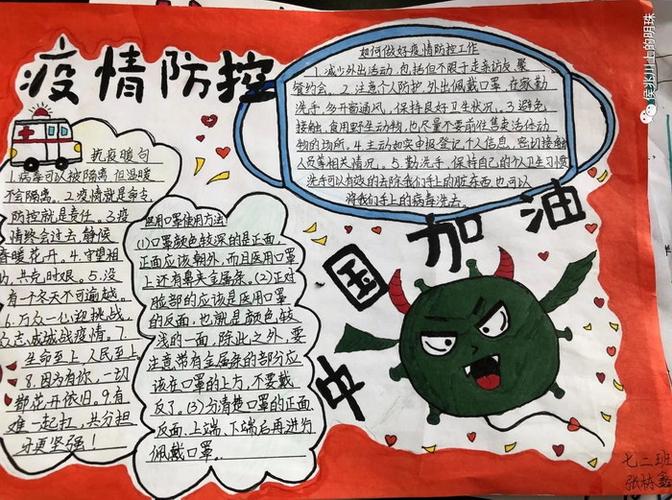 疫情防控
如何做好疫情防控工作
1.减少外出活动,包括但不限于走亲访友、聚
餐约会。2.注意个人防护,外出佩戴口罩,在家勤
洗手,多开窗通风,保持良好卫生状况。3.避免
接触、食用野生动物,也尽量不要前往售卖活体动
物的场所。4.主动如实申报登记个人信息,密切接触
人员等相关情况。5.勤洗手,保持自己的个人卫生习惯,
洗手可以有效的去除我们手上的脏东西,也可以
将我们手上的病毒洗去。
抗疫暖句
1.病毒可以被隔离,但温暖
不会隔离。2.疫情就是命令,
防控就是责任。3.疫
情终会过去,静候
春暖花开。4.守望相
助,共克时艰。5.没
有一个冬天不可逾越。
6.万众一心迎挑战,
众志成城战疫情。7.
生命至上,人民至上
8.因为有你,一切
都花开依旧。9.有
难一起扛,共分担
才更坚强!
医用口罩使用方法:
(1)口罩颜色较深的是正面,
正面应该朝外,而且医用口罩
上还有鼻夹金属条。(2)正对
脸部的应该是医用口罩
的反面,也就是颜色较
浅的一面,除此之外,要
注意带有金属条的部分应
该在口罩的上方,不要戴
反了。(3)分清楚口罩的正面、
反面、上端、下端后再进行
佩戴口罩。
中国加油
七二班
侯兆川上的明珠